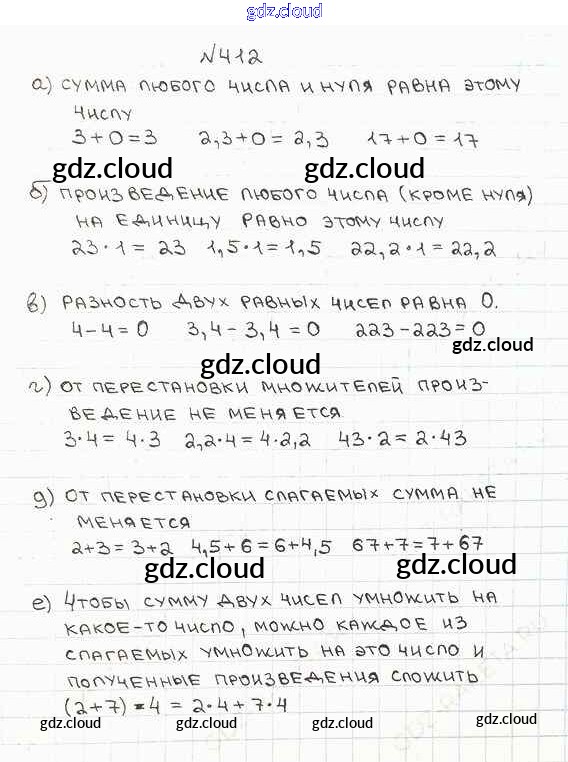 gdz.cloud
№412
а) СУММА ЛЮБОГО ЧИСЛА И НУЛЯ РАВНА ЭТОМУ
ЧИСЛУ
3+0=3 2,3+0=2,3 17+0=17
gdz.cloud gdz.cloud
б) ПРОИЗВЕДЕНИЕ ЛЮБОГО ЧИСЛА (КРОМЕ НУЛЯ)
НА ЕДИНИЦУ РАВНО ЭТОМУ ЧИСЛУ
23·1=23 1,5·1=1,5 22,2·1=22,2
в) РАЗНОСТЬ ДВУХ РАВНЫХ ЧИСЕЛ РАВНА 0.
4-4=0 3,4-3,4=0 223-223=0
gdz.cloud
gdz.cloud
г) ОТ ПЕРЕСТАНОВКИ МНОЖИТЕЛЕЙ ПРОИЗ-
ВЕДЕНИЕ НЕ МЕНЯЕТСЯ
3·4=4·3 2,2·4=4·2,2 43·2=2·43
д) ОТ ПЕРЕСТАНОВКИ СЛАГАЕМЫХ СУММА НЕ
МЕНЯЕТСЯ
2+3=3+2 4,5+6=6+4,5 67+7=7+67
gdz.cloud gdz.cloud
е) ЧТОБЫ СУММУ ДВУХ ЧИСЕЛ УМНОЖИТЬ НА
КАКОЕ-ТО ЧИСЛО, МОЖНО КАЖДОЕ ИЗ
СЛАГАЕМЫХ УМНОЖИТЬ НА ЭТО ЧИСЛО И
ПОЛУЧЕННЫЕ ПРОИЗВЕДЕНИЯ СЛОЖИТЬ
(2+7)·4=2·4+7·4
gdz.cloud gdz.cloud gdz.cloud gdz.cloud